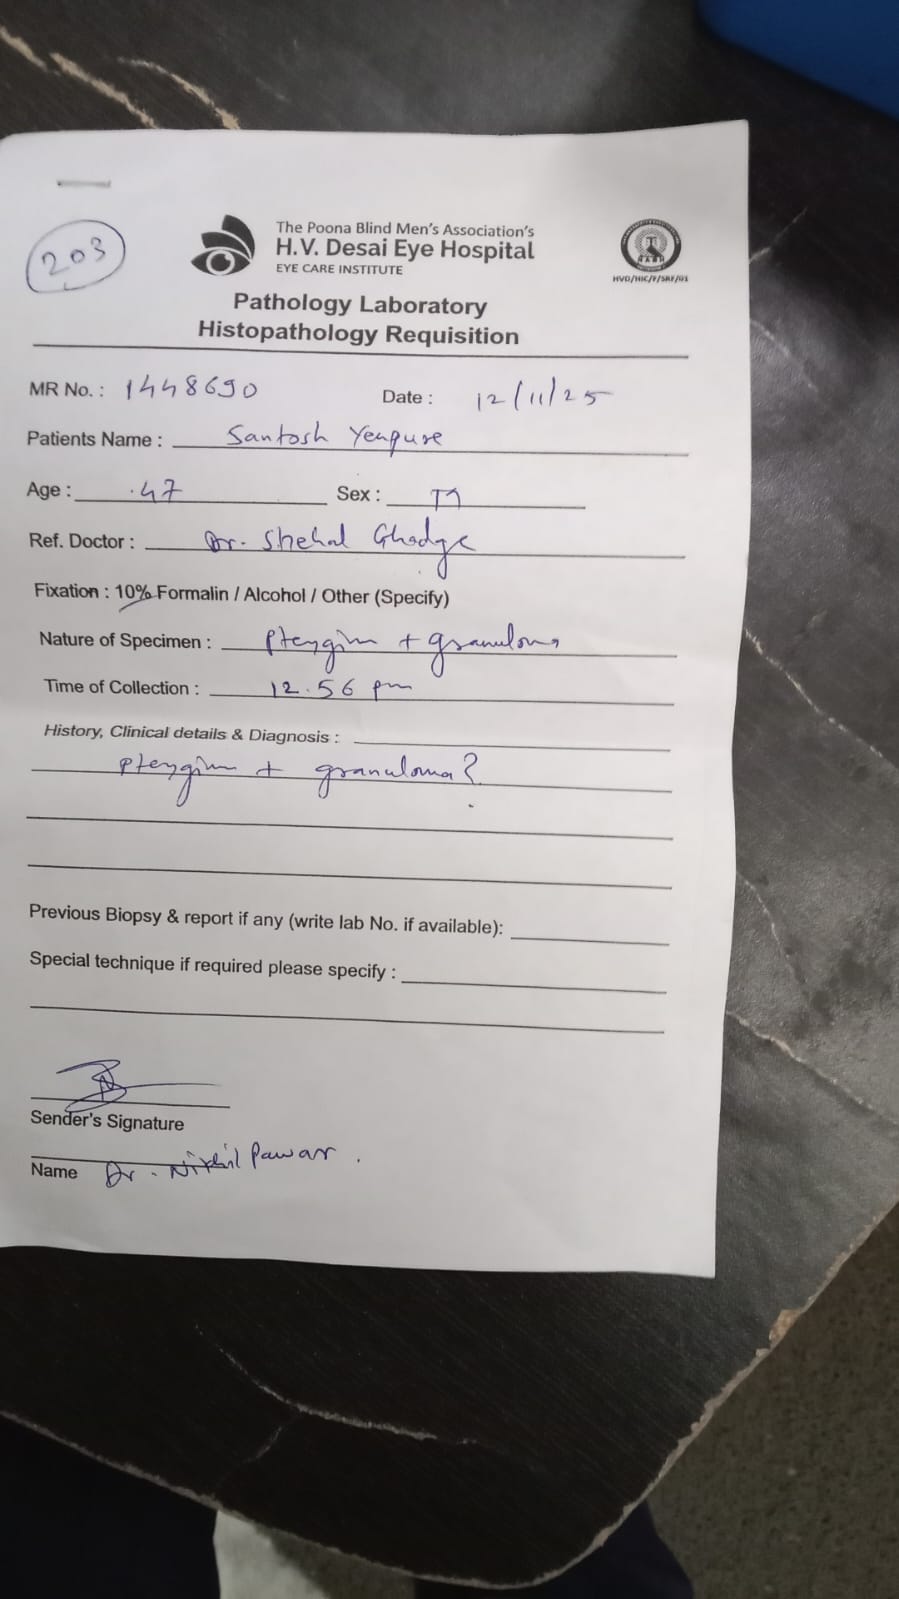 203
The Poona Blind Men's Association's
H.V. Desai Eye Hospital
EYE CARE INSTITUTE
HVD/HIC/F/SRF/01
Pathology Laboratory
Histopathology Requisition
MR No. : 1448690 Date : 12/11/25
Patients Name : Santosh Yenpure
Age : 47 Sex : M
Ref. Doctor : Dr. Snehal Ghodge
Fixation : 10% Formalin / Alcohol / Other (Specify)
Nature of Specimen : + granuloma
Time of Collection : 12.56 pm
History, Clinical details & Diagnosis :
+ granuloma?
Previous Biopsy & report if any (write lab No. if available):
Special technique if required please specify :
Sender's Signature
Name Dr. Nikhil Pawar.